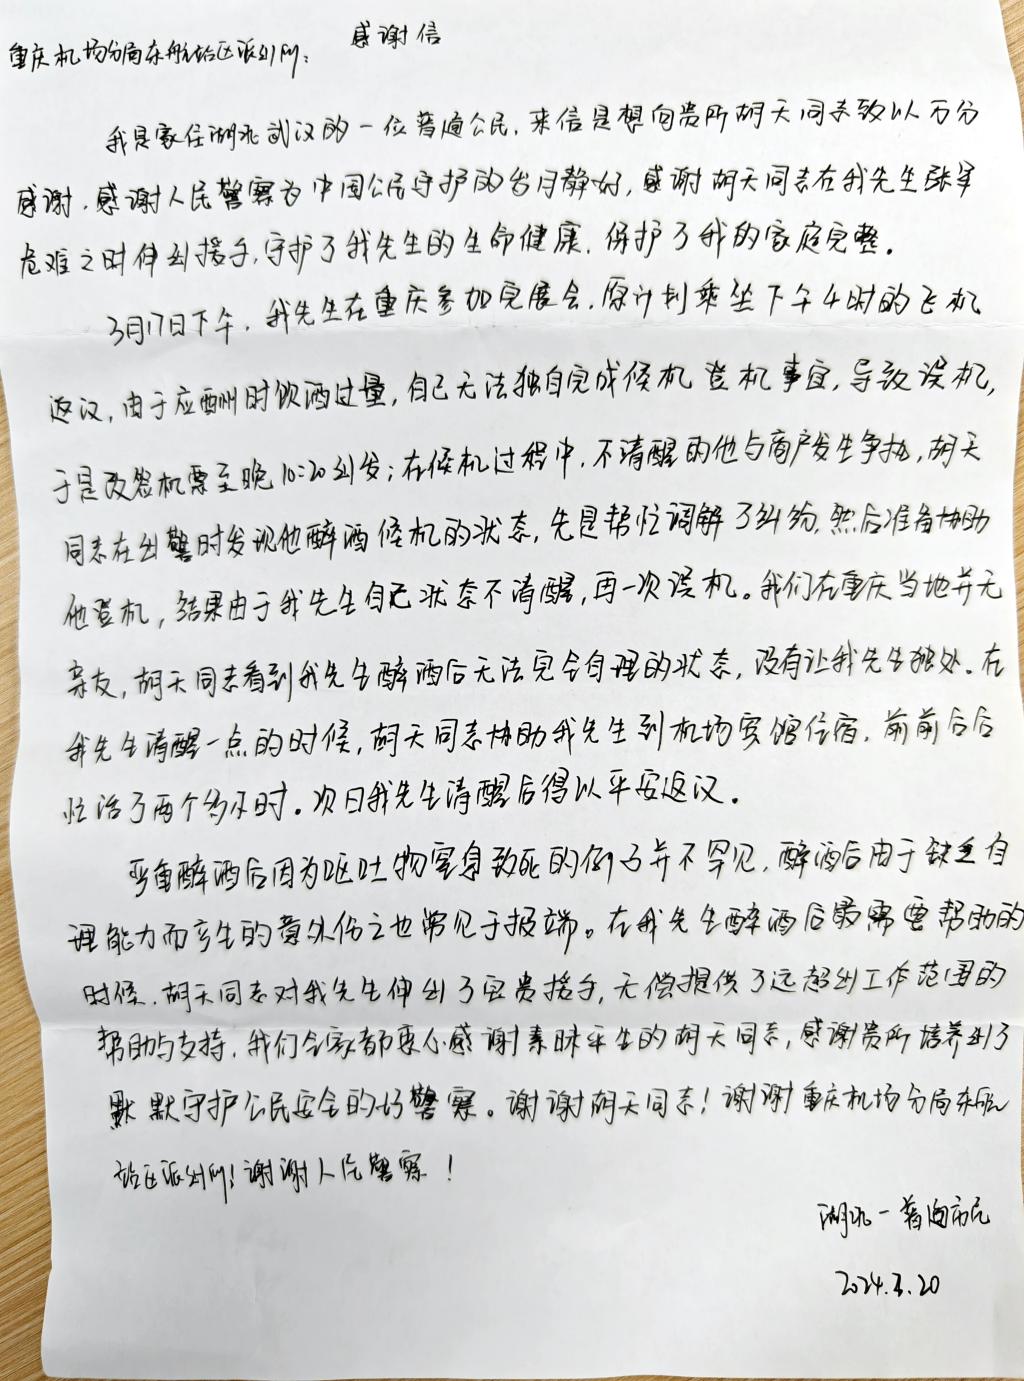 感谢信
重庆机场分局东航站区派出所：
我是家住湖北武汉的一位普通公民，来信是想向贵所胡天同志致以万分
感谢，感谢人民警察为中国公民守护的岁月静好，感谢胡天同志在我先生张军
危难之时伸出援手，守护了我先生的生命健康，保护了我的家庭完整。
3月17日下午，我先生在重庆参加完展会，原计划乘坐下午4时的飞机
返汉，由于应酬时饮酒过量，自己无法独自完成候机登机事宜，导致误机，
于是改签机票至晚10:20出发；在候机过程中，不清醒的他与商户发生争执，胡天
同志在出警时发现他醉酒候机的状态，先是帮忙调解了纠纷，然后准备协助
他登机，结果由于我先生自己状态不清醒，再一次误机。我们在重庆当地并无
亲友，胡天同志看到我先生醉酒后无法完全自理的状态，没有让我先生独处。在
我先生清醒一点的时候，胡天同志协助我先生到机场宾馆住宿，前前后后
忙活了两个多小时。次日我先生清醒后得以平安返汉。
毕竟醉酒后因为呕吐物窒息致死的例子并不罕见，醉酒后由于缺乏自
理能力而产生的意外伤亡也常见于报端。在我先生醉酒后最需要帮助的
时候，胡天同志对我先生伸出了宝贵援手，无偿提供了远超出工作范围的
帮助与支持，我们全家都衷心感谢素昧平生的胡天同志，感谢贵所培养出了
默默守护公民安全的好警察。谢谢胡天同志！谢谢重庆机场分局东航
站区派出所！谢谢人民警察！
湖北一普通市民
2024.3.20